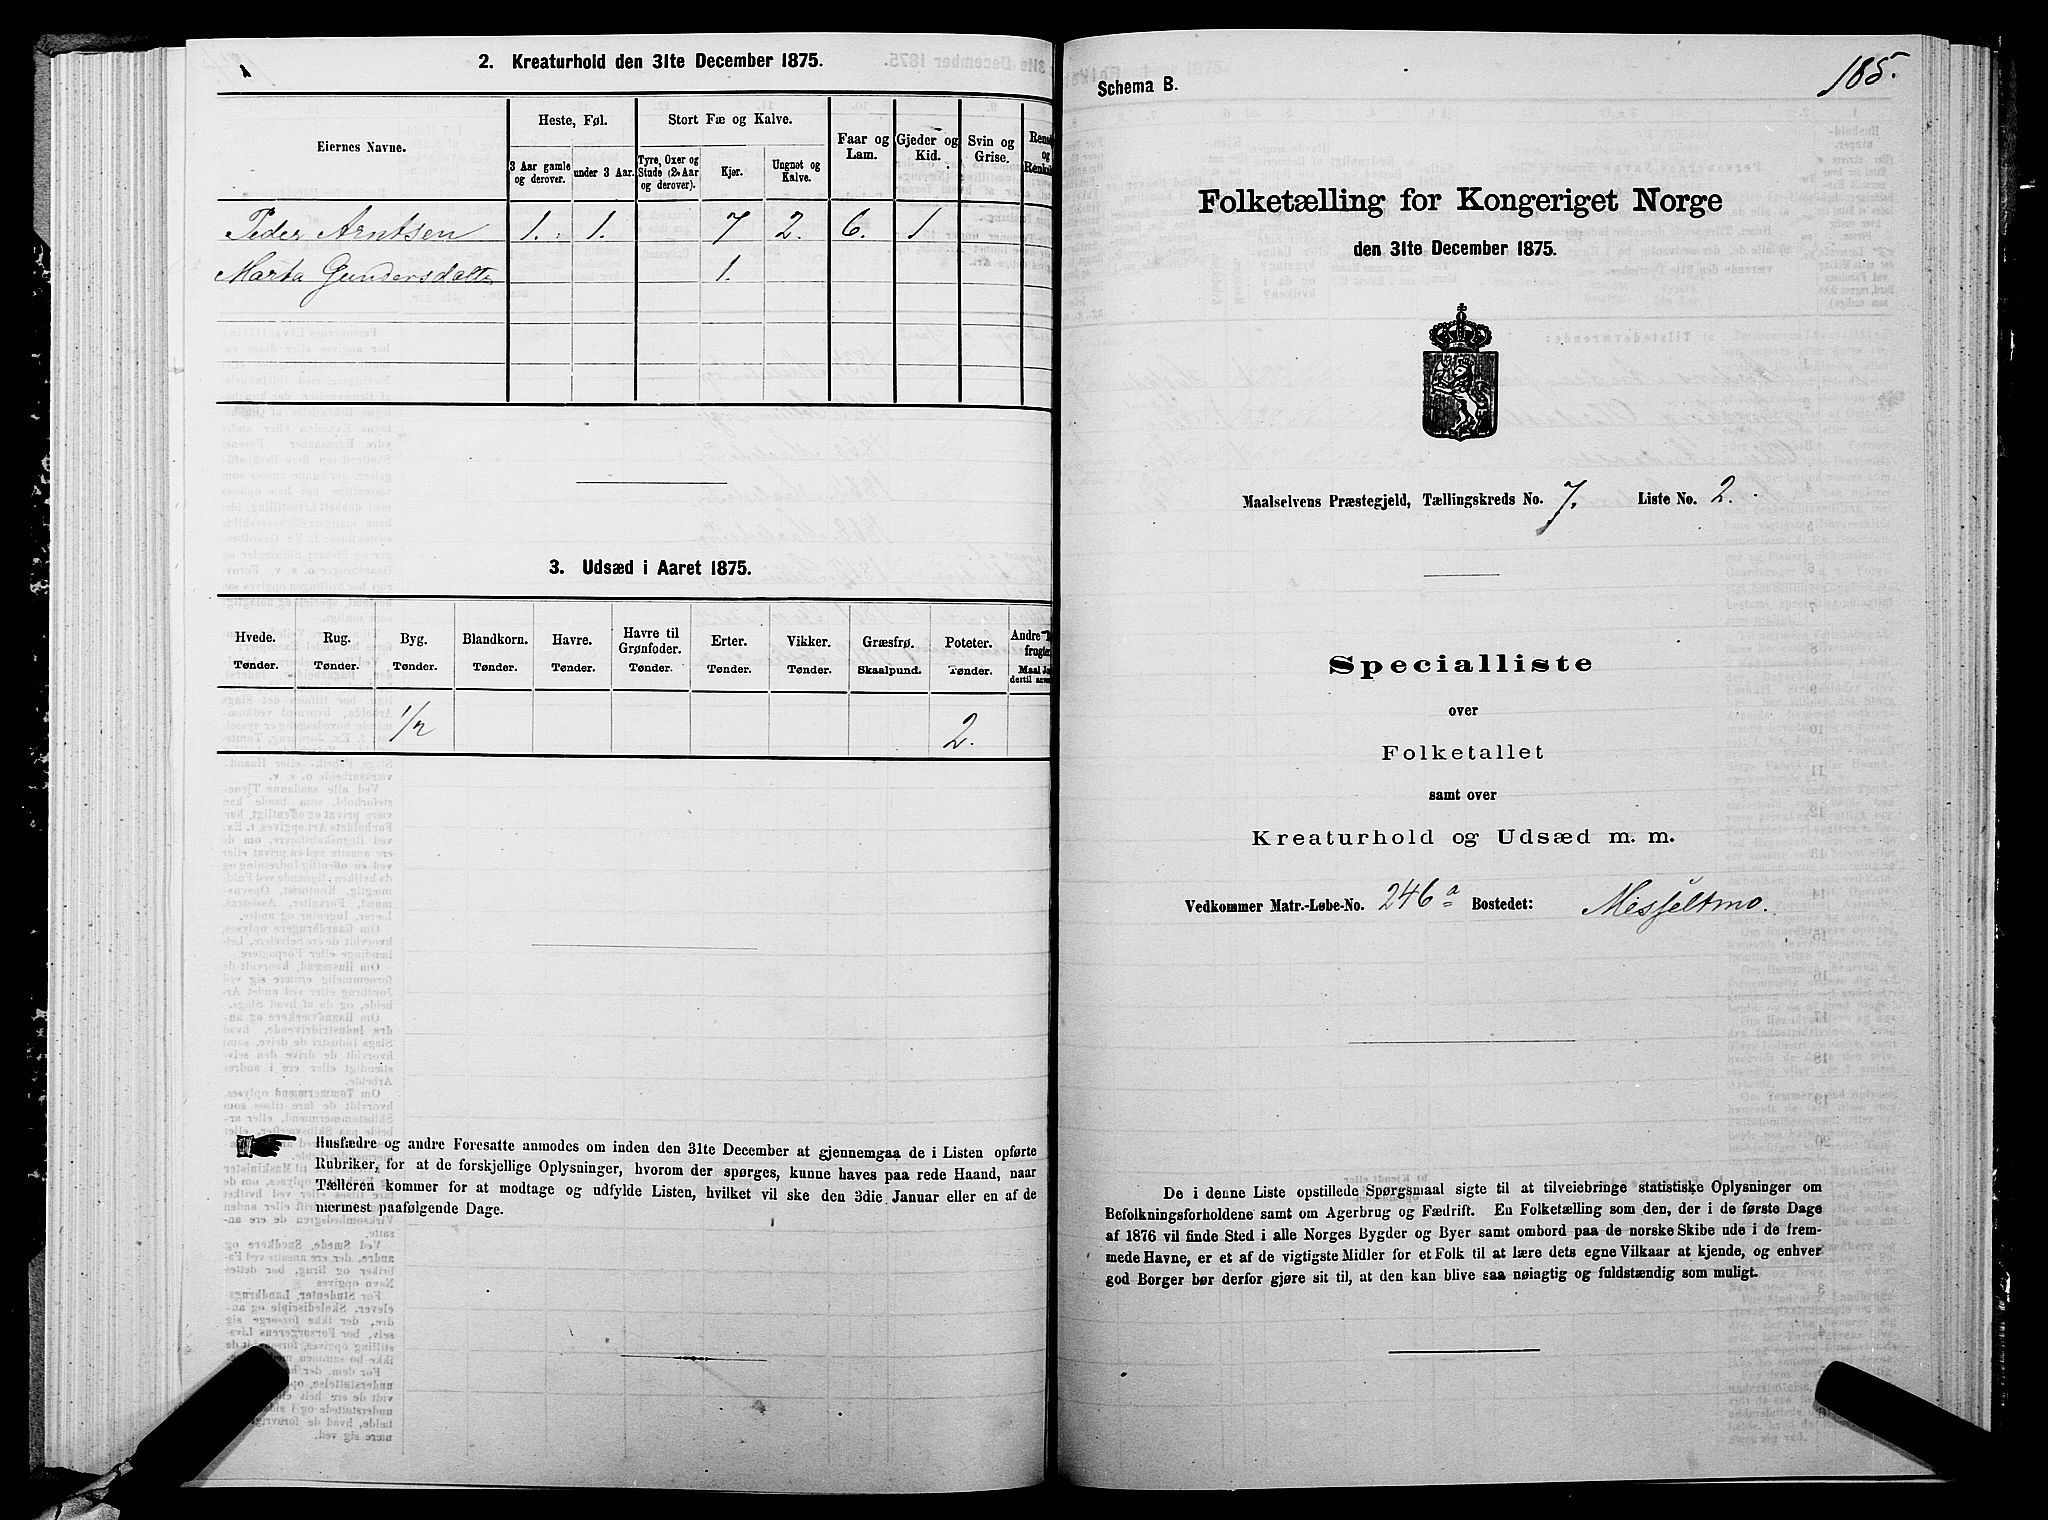 2. Kreaturhold den 31te December 1875.
Eiernes Navne.
Heste, Føl.
3 Aar gamle og derover.
under 3 Aar.
Stort Fæ og Kalve.
Tyre, Oxer og Stude (2 Aar og derover).
Kjør.
Ungnøt og Kalve.
Faar og Lam.
Gjeder og Kid.
Svin og Grise.
og
Peder Arntsen 1. 1. 7 2. 6. 1
Marta Gundersdatte 1.
3. Udsæd i Aaret 1875.
Hvede. Rug. Byg. Blandkorn. Havre. Havre til Grønfoder. Erter. Vikker. Græsfrø. Poteter. Andre
Tønder. Tønder. Tønder. Tønder. Tønder. Tønder. Tønder. Tønder. Skaalpund. Tønder.
1/2 2.
Husfædre og andre Foresatte anmodes om inden den 31te December at gjennemgaa de i Listen opførte
Rubriker, for at de forskjellige Oplysninger, hvorom der spørges, kunne haves paa rede Haand, naar
Tælleren kommer for at modtage og udfylde Listen, hvilket vil ske den 3die Januar eller en af de
nærmest paafølgende Dage.
185.
Schema B.
Folketælling for Kongeriget Norge
den 31te December 1875.
Maalselvens Præstegjeld, Tællingskreds No. 7. Liste No. 2.
Specialliste
over
Folketallet
samt over
Kreaturhold og Udsæd m. m.
Vedkommer Matr.-Løbe-No. 246a Bostedet: Misjeltmo.
De i denne Liste opstillede Spørgsmaal sigte til at tilveiebringe statistiske Oplysninger om
Befolkningsforholdene samt om Agerbrug og Fædrift. En Folketælling som den, der i de første Dage
af 1876 vil finde Sted i alle Norges Bygder og Byer samt ombord paa de norske Skibe ude i de frem-
mede Havne, er et af de vigtigste Midler for et Folk til at lære dets egne Vilkaar at kjende, og enhver
god Borger bør derfor gjøre sit til, at den kan blive saa nøiagtig og fuldstændig som muligt.